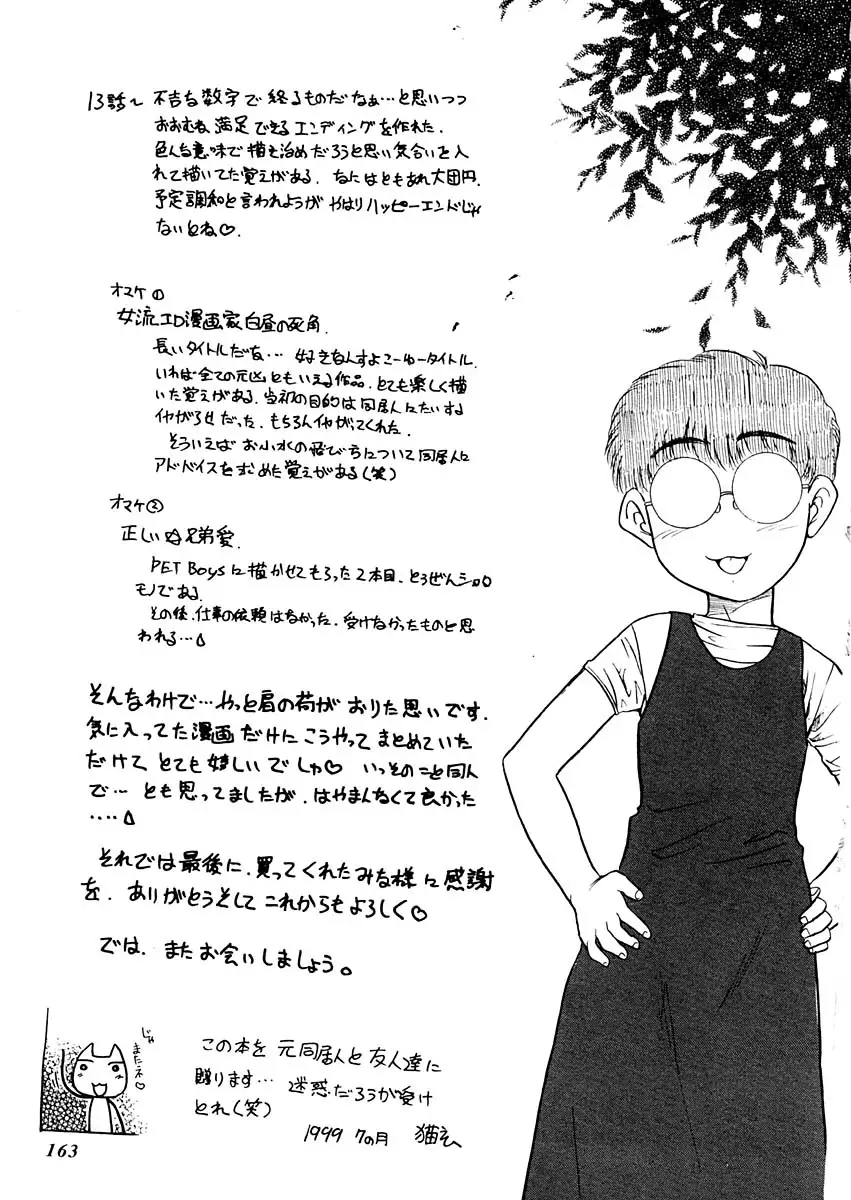 13話~ 不吉な数字で終るものだなぁ…と思いつつ
おおむね満足できるエンディングを作れた.
色んな意味で描き治めだろうと思い気合いを入
れて描いてた覚えがある. なにはともあれ大団円.
予定調和と言われようが やはりハッピーエンドじゃ
ないとね♡.
オマケ①
女流エロ漫画家白昼の死角.
長いタイトルだな… 好きなんすよこーゆータイトル.
いわば全ての元凶ともいえる作品. とても楽しく描
いた覚えがある. 当初の目的は同居人にたいする
イヤガラセだった. もちろんイヤがってくれた.
そういえばお小水の飛びちについて同居人に
アドバイスを求めた覚えがある(笑)
オマケ②
正しい兄弟愛.
PET Boysに描かせてもらった2本目. とうぜんショタ
モノである.
その後. 仕事の依頼はなかった. 受けなかったものと思
われる…
そんなわけで…やっと肩の荷がおりた思いです.
気に入ってた漫画だけにこうやってまとめていた
だけて とても嬉しいでしゅ♡ いっそのこと同人
で… とも思ってましたが. はやまんなくて良かった
....
それでは最後に. 買ってくれたみな様に感謝
を. ありがとうそして これからもよろしく♡
では. またお会いしましょう。
じゃ
またネ♡
この本を 元同居人と友人達に
贈ります… 迷惑だろうが受け
とれ(笑)
1999 7の月 猫玄
163